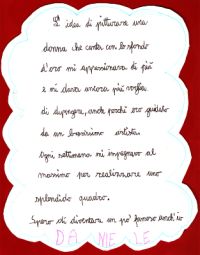 L'idea di pitturare una
donna che canta con lo sfondo
d'oro mi appassionava di più
e mi dava ancora più voglia
di dipingere, anche perché ero guidato
da un bravissimo artista.
Ogni settimana mi impegnavo al
massimo per realizzare uno
splendido quadro.
Spero di diventare un po' famoso anch'io
DANIELE